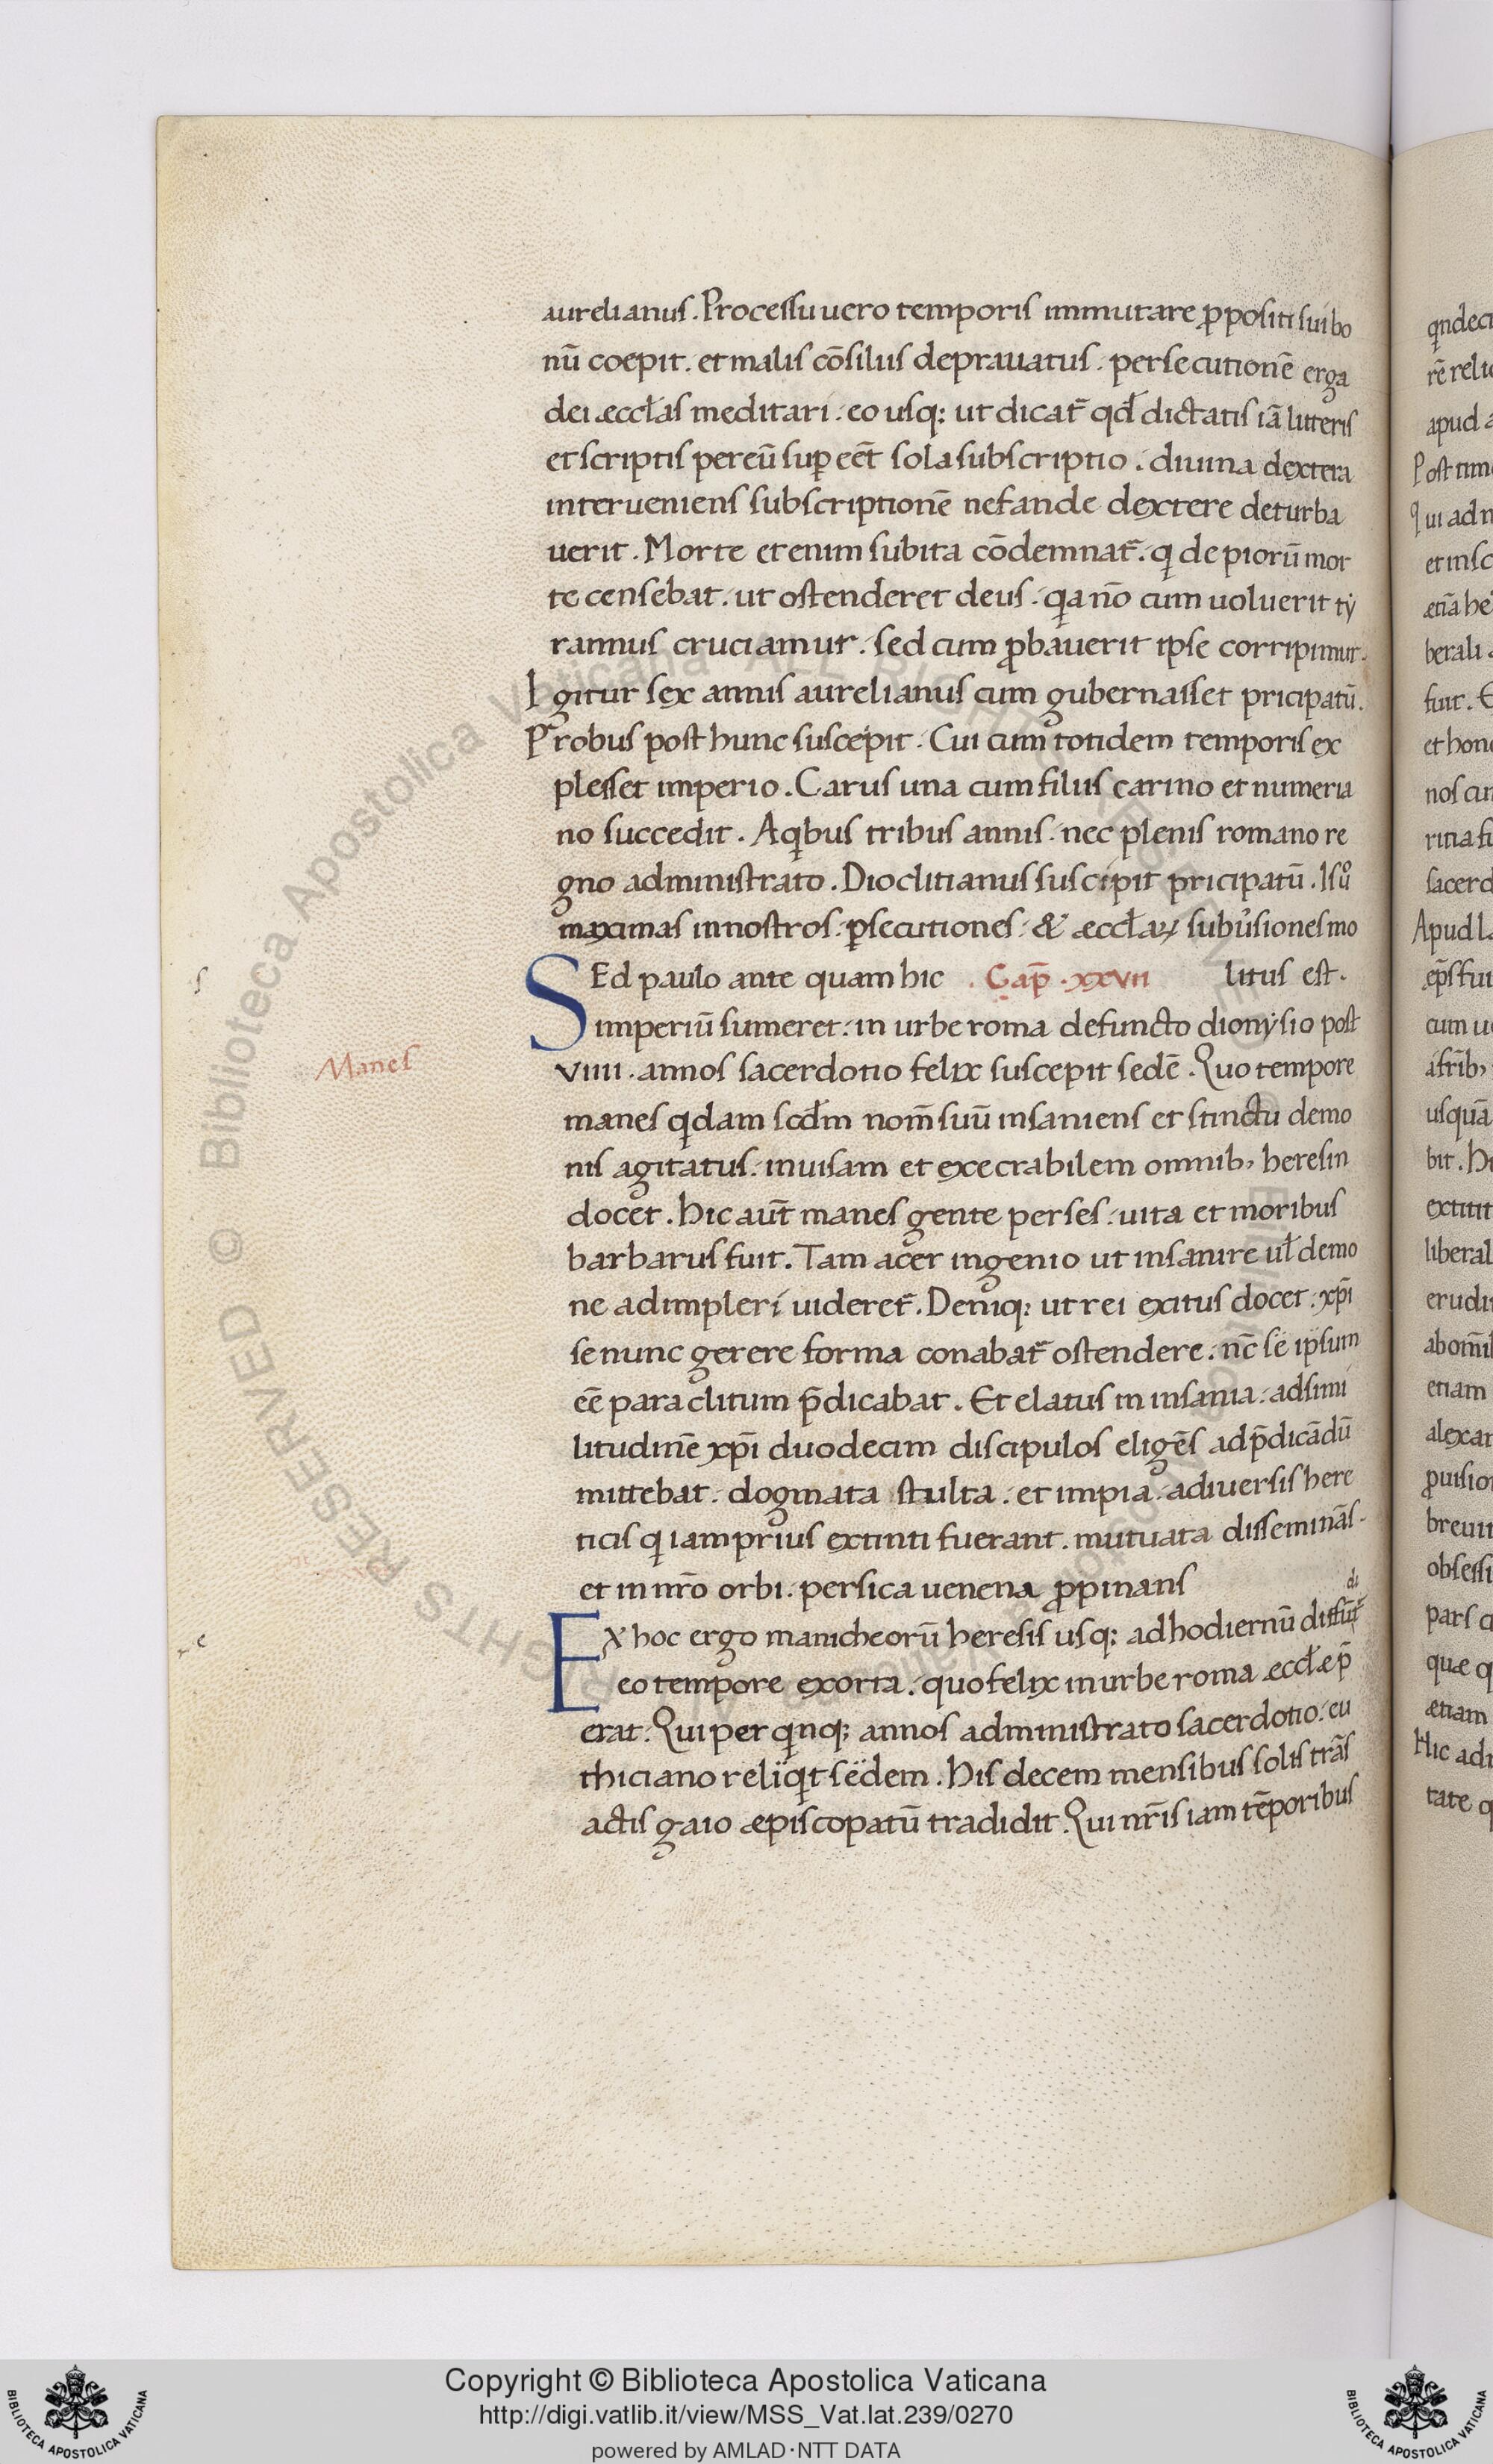 aurelianus. Processu uero temporis immutare ꝓpositi sui bo
nū coepit. et malis cōsiliis deprauatus. persecutionē erga
dei æccłas meditari. eo usq; ut dicat᷒ qđ dictatis iā litteris
et scriptis per eū suꝑ eēt sola subscriptio. diuina dextera
interueniens subscriptionē nefande dextere deturba
uerit. Morte etenim subita cōdemnat᷒. q de piorū mor
te censebat. ut ostenderet deus. qa nō cum uoluerit tẏ
rannus cruciamur. sed cum ꝓbauerit ipse corripimur.
Igitur sex annis aurelianus cum gubernasset pricipatū.
Probus post hunc suscepit. Cui cum totidem temporis ex
plesset imperio. Carus una cum filiis carino et numeria
no succedit. A qbus tribus annis. nec plenis romano re
gno administrato. Dioclitianus suscipit pricipatū. Is
maximas in nostros. ꝑsecutiones. & æccłaꝝ subuersiones mo
SEd paulo ante quam hic . Cap̄ . xxvii litus est.
imperiū sumeret. in urbe roma defuncto dionẏsio post
viiii. annos sacerdotio felix suscepit sedē. Quo tempore
Manes
manes qdam scđm nom̄ suū insaniens et stinctu demo
nis agitatus. inuisam et execrabilem omnib, heresin
docet. Hic aut̄ manes gente perses. uita et moribus
barbarus fuit. Tam acer ingenio ut insanire uł demo
ne adimpleri uideret᷒. Deniq; ut rei exitus docet. xp̄i
se nunc gerere forma conabat᷒ ostendere. nc̄ se ipsum
eē paraclitum p̄dicabat. Et elatus in insania. ad simi
litudinē xp̄i duodecim discipulos eligēs ad p̄dicādū
mittebat. dogmata stulta. et impia. a diuersis here
ticis q iam prius extinti fuerant. mutuata disseminās.
et in nr̄o orbi. persica uenena ꝓpinans
di
EX hoc ergo manicheorū heresis usq; ad hodiernū diffūt᷒
eo tempore exorta. quo felix in urbe roma æccłæ p̄
erat. Qui per qnq; annos administrato sacerdotio. eu
thiciano reliqt sedem. His decem mensibus solis trās
actis gaio æpiscopatū tradidit. Qui nr̄is iam tēporibus
s
e
Copyright © Biblioteca Apostolica Vaticana
http://digi.vatlib.it/view/MSS_Vat.lat.239/0270
powered by AMLAD·NTT DATA
BIBLIOTECA APOSTOLICA VATICANA
BIBLIOTECA APOSTOLICA VATICANA